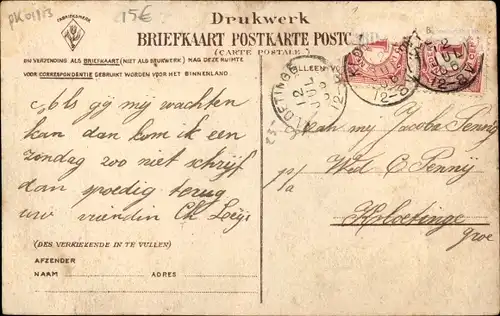 PK01153
15€
FABRIEKSMERK
Drukwerk
BRIEFKAART POSTKARTE POSTC
(CARTE POSTALE)
BIJ VERZENDING ALS BRIEFKAART (NIET ALS DRUKWERK) MAG DEZE RUIMTE
VOOR CORRESPONDENTIE GEBRUIKT WORDEN VOOR HET BINNENLAND.
ALLEEN VO
KLOETINGE
12
Als gij mij wachten
kan dan kom ik een
zondag zoo niet schrijf
dan spoedig terug
uw vriendin Ch
Aan mej
Wed C Pennij
p/a
Kloetinge
(DES VERKIEZENDE IN TE VULLEN)
AFZENDER
NAAM
ADRES